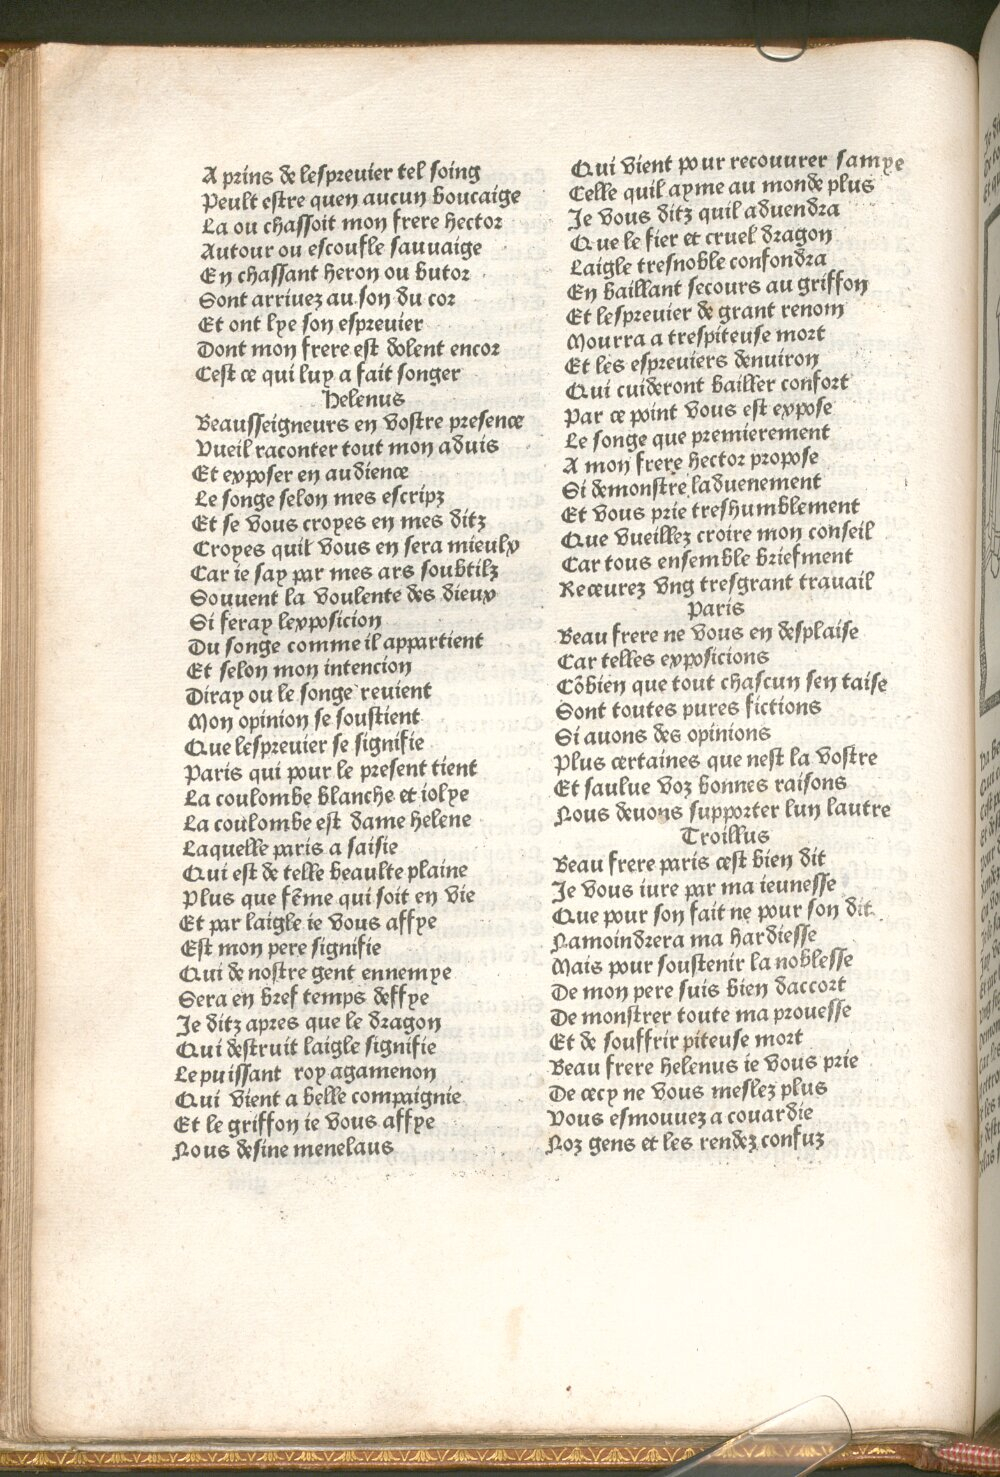 A prins de lespreuier tel soing
Peult estre quen aucun boucaige
La ou chassoit mon frere hector
Autour ou escoufle sauuaige
En chassant heron ou butor
Sont arriuez au son du cor
Et ont lye son espreuier
Dont mon frere est dolent encor
Cest ce qui luy a fait songer
Helenus
Beausseigneurs en vostre presence
Vueil raconter tout mon aduis
Et exposer en audience
Le songe selon mes escripz
Et se vous croyes en mes ditz
Croyes quil vous en sera mieulx
Car ie say par mes ars soubtilz
Souuent la voulente des dieux
Si feray lexposicion
Du songe comme il appartient
Et selon mon intencion
Diray ou le songe reuient
Mon opinion se soustient
Que lespreuier se signifie
Paris qui pour le present tient
La coulombe blanche et iolye
La coulombe est dame helene
Laquelle paris a saisie
Qui est de telle beaulte plaine
Plus que fēme qui soit en vie
Et par laigle ie vous affye
Est mon pere signifie
Qui de nostre gent ennemye
Sera en bref temps deffye
Je ditz apres que le dragon
Qui destruit laigle signifie
Le puissant roy agamenon
Qui vient a belle compaignie
Et le griffon ie vous affye
Nous desine menelaus
Qui vient pour recouurer sampe
Celle quil ayme au monde plus
Je vous ditz quil aduendra
Que le fier et cruel dragon
Laigle tresnoble confondra
En baillant secours au griffon
Et lespreuier de grant renom
Mourra a trespiteuse mort
Et les espreuiers denuiron
Qui cuideront bailler confort
Par ce point vous est expose
Le songe que premierement
A mon frere hector propose
Si demonstre laduenement
Et vous prie treshumblement
Que vueillez croire mon conseil
Car tous ensemble briefment
Receurez vng tresgrant trauail
Paris
Beau frere ne vous en desplaise
Car telles exposicions
Cōbien que tout chascun sen taise
Sont toutes pures fictions
Si auons des opinions
Plus certaines que nest la vostre
Et saulue voz bonnes raisons
Nous deuons supporter lun lautre
Troillus
Beau frere paris cest bien dit
Je vous iure par ma ieunesse
Que pour son fait ne pour son dit
Namoindrera ma hardiesse
Mais pour soustenir la noblesse
De mon pere suis bien daccort
De monstrer toute ma prouesse
Et de souffrir piteuse mort
Beau frere helenus ie vous prie
De cecy ne vous meslez plus
Vous esmouuez a couardie
Noz gens et les rendez confuz